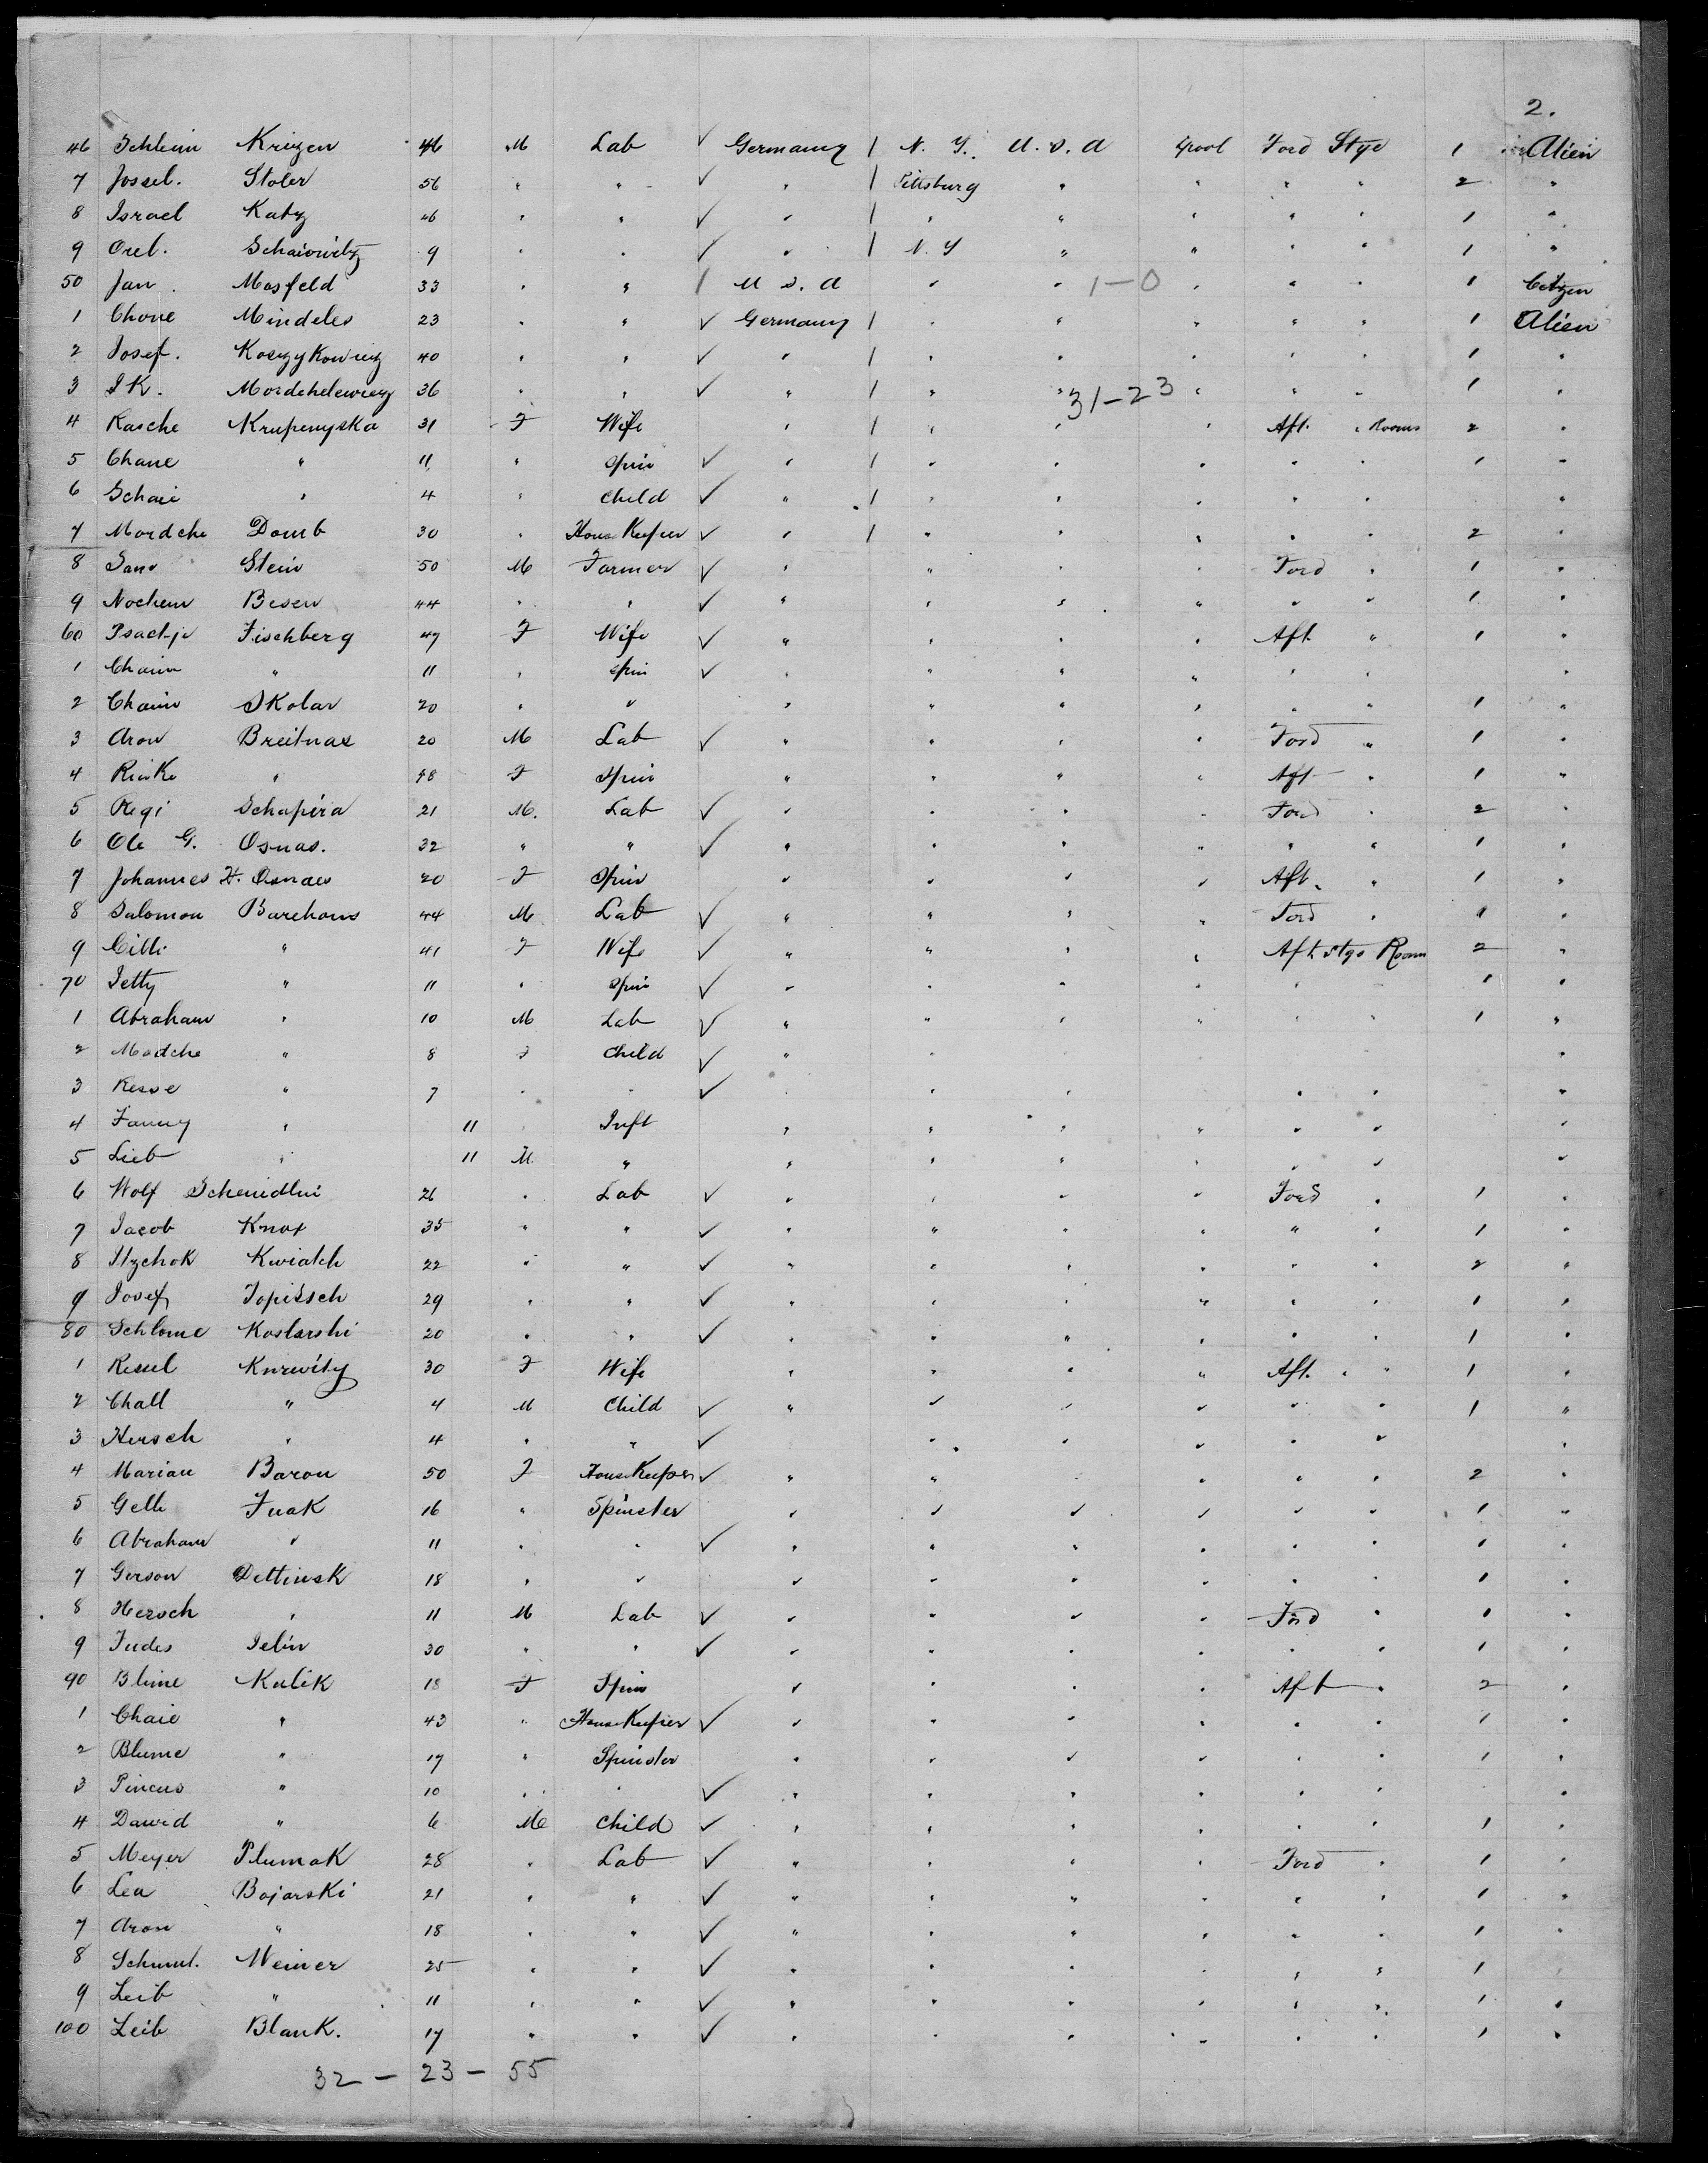 2.
46 Schleim Krizen 46 M Lab ✓ Germany / N. Y. U. S. A Lpool Ford Stge 1 Alien
7 Jossel. Stoler 56 " " ✓ " / Pittsburg " " " " 2 "
8 Israel Katz 46 " " ✓ " / " " " " " 1 "
9 Orel. Schaiowitz 9 " " ✓ " / N. Y " " " " 1 "
50 Jan Mosfeld 33 " " / U S. A " " 1-0 " " " 1 Citzen
1 Chone Mindeles 23 " " ✓ Germany / " " " " " 1 Alien
2 Josef. Koszykowicz 40 " " ✓ " / " " " " " 1 "
3 I K. Mordchelewicz 36 " " ✓ " / " " 31-23 " " " 1 "
4 Rasche Krupenyska 31 F Wife " / " " " Aft. " Rooms 2 "
5 Chane " 11 " Spin ✓ " / " " " " " 1 "
6 Schaie " 4 " Child ✓ " / " " " " " "
7 Mordche Domb 30 " House Keeper ✓ " / " " " " " 2 "
8 Sans Stein 50 M Farmer ✓ " " " " Ford " 1 "
9 Nochem Besen 44 " " ✓ " " " " " " 1 "
60 Fischberg 47 F Wife ✓ " " " " Aft " 1 "
1 Chaim " 11 " Spin ✓ " " " " " " "
2 Chaim Skolar 20 " " " " " " " " 1 "
3 Aron Breitnas 20 M Lab ✓ " " " " Ford " 1 "
4 Rinke " 18 F Spin " " " " Aft " 1 "
5 Regi Schapira 21 M. Lab ✓ " " " " Ford " 2 "
6 Ole G. Osnas. 32 " " ✓ " " " " " " 1 "
7 Johannes H. Osnaes 20 F Spin " " " " Aft. " 1 "
8 Salomon Barehons 44 M Lab ✓ " " " " Ford " 1 "
9 Cilli " 41 F Wife ✓ " " " " Aft Stge Room 2 "
70 Jetty " 11 " Spin ✓ " " " " " 1 "
1 Abraham " 10 M Lab ✓ " " " " " " 1 "
2 Mordche " 8 F Child ✓ " " "
3 Resse " 7 " " ✓ " " " " " "
4 Fanny " 11 " Inft " " " " " " "
5 Lieb " 11 M " " " " " " " "
6 Wolf Schenidlni 26 " Lab ✓ " " " " Ford " 1 "
7 Jacob Knox 35 " " ✓ " " " " " " 1 "
8 Itzchok Kwiatch 22 " " ✓ " " " " " " 2 "
9 Josef Topitsch 29 " " ✓ " " " " " " 1 "
80 Schlome Kostarski 20 " " ✓ " " " " " " 1 "
1 Resul Knrwity 30 F Wife " " " " Aft. " " 1 "
2 Chall " 4 M Child ✓ " " " " " " 1 "
3 Hersch " 4 " " ✓ " " " " " "
4 Marian Baron 50 F House Keeper ✓ " " " " " 2 "
5 Gelle Fuak 16 " Spinster " " " " " " 1 "
6 Abraham " 11 " " ✓ " " " " " " 1 "
7 Gerson Dettinsk 18 " " " " " " " " 1 "
8 Hersch " 11 M Lab ✓ " " " " Ford " 1 "
9 Judes Jelin 30 " " ✓ " " " " " " 1 "
90 Blime Kulik 18 F Spin " " " " Aft " 2 "
1 Chaie " 43 " House Keeper ✓ " " " " " " 1 "
2 Blume " 17 " Spinster " " " " " " 1 "
3 Pincus " 10 " " ✓ " " " " " " "
4 Dawid " 6 M Child ✓ " " " " " " 1 "
5 Meyer Plumak 28 " Lab ✓ " " " " Ford " 1 "
6 Lea Bojarski 21 " " ✓ " " " " " " 1 "
7 Aron " 18 " " ✓ " " " " " " 1 "
8 Schmul. Weiner 25 " " ✓ " " " " " " 1 "
9 Leib " 11 " " ✓ " " " " " " 1 "
100 Leib Blank. 17 " " ✓ " " " " " " 1 "
32 - 23 - 55